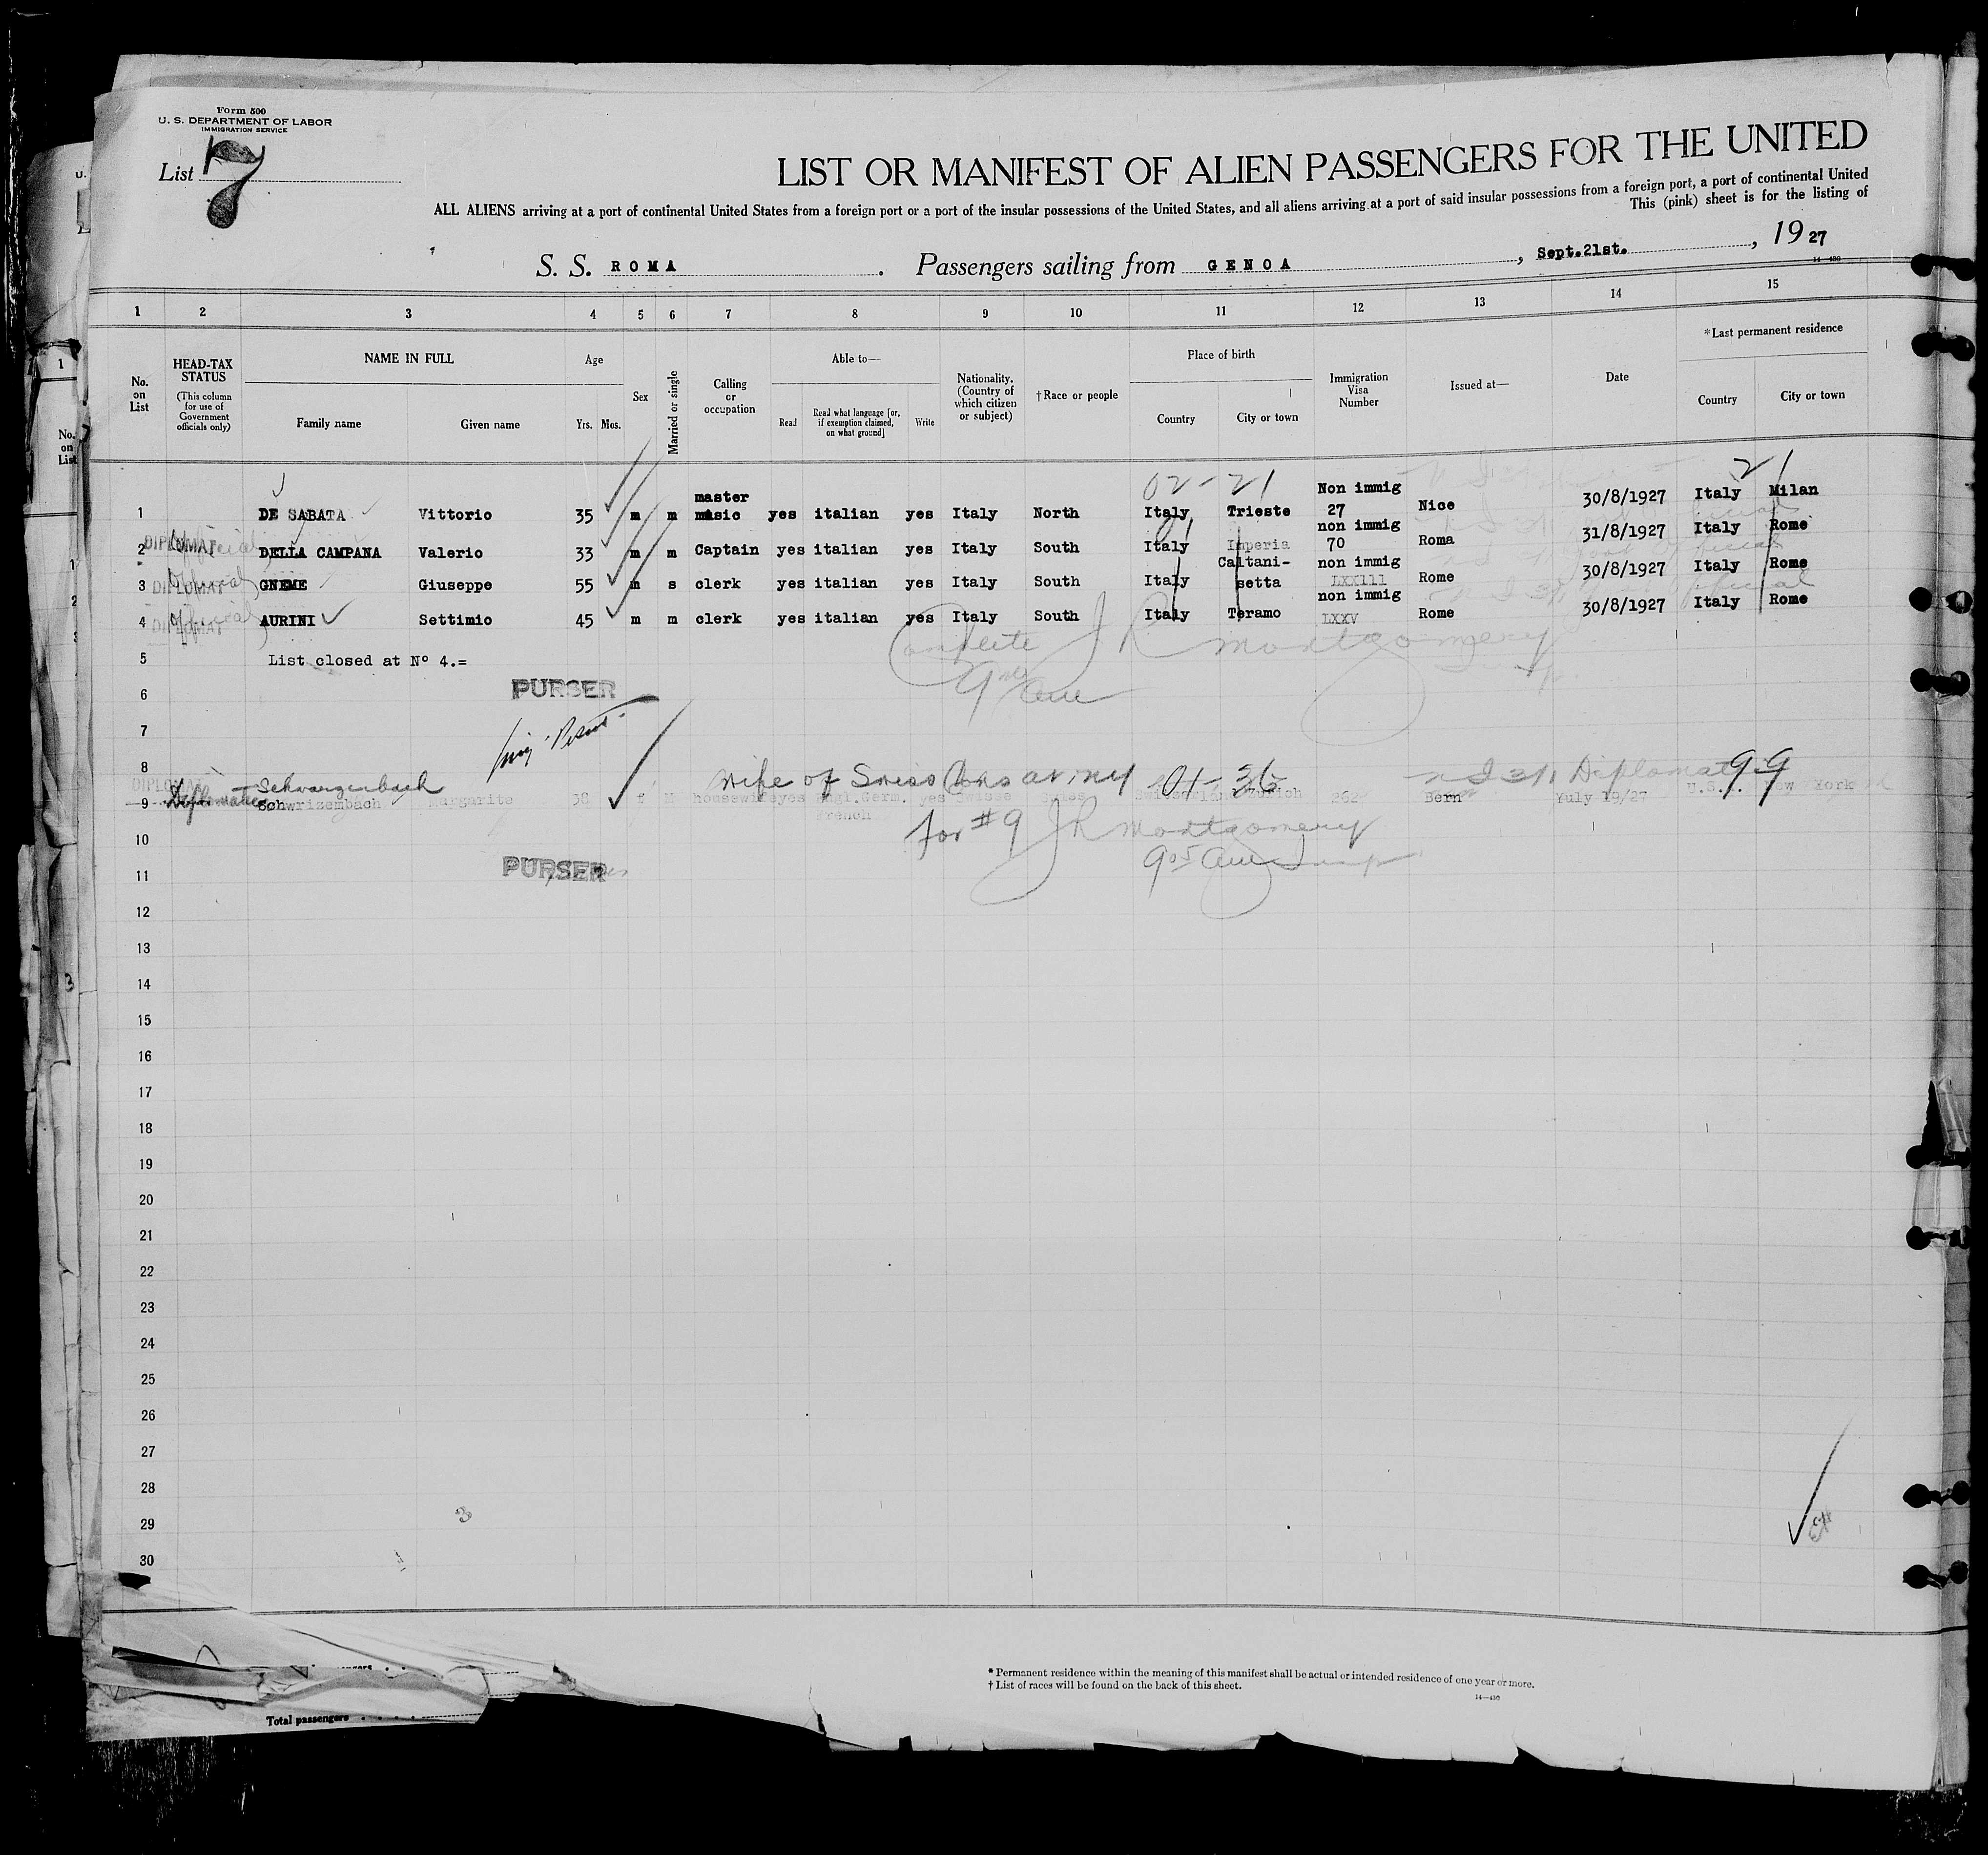 Form 500
U. S. DEPARTMENT OF LABOR
IMMIGRATION SERVICE
List 7
LIST OR MANIFEST OF ALIEN PASSENGERS FOR THE UNITED
ALL ALIENS arriving at a port of continental United States from a foreign port or a port of the insular possessions of the United States, and all aliens arriving at a port of said insular possessions from a foreign port, a port of continental United
This (pink) sheet is for the listing of
S. S. ROMA . Passengers sailing from GENOA , Sept.21st. , 19 27
14—430
1 2 3 4 5 6 7 8 9 10 11 12 13 14 15
No. on List
HEAD-TAX STATUS
(This column for use of Government officials only)
NAME IN FULL
Family name Given name
Age
Yrs. Mos.
Sex
Married or single
Calling or occupation
Able to—
Read Read what language [or, if exemption claimed, on what ground] Write
Nationality. (Country of which citizen or subject)
†Race or people
Place of birth
Country City or town
Immigration Visa Number
Issued at—
Date
*Last permanent residence
Country City or town
02-21 21
1 DE SABATA Vittorio 35 m m master music yes italian yes Italy North Italy Trieste Non immig 27 Nice 30/8/1927 Italy Milan
2 DIPLOMAT Official DELLA CAMPANA Valerio 33 m m Captain yes italian yes Italy South Italy Imperia non immig 70 Roma 31/8/1927 Italy Rome
3 DIPLOMAT Official GNEME Giuseppe 55 m s clerk yes italian yes Italy South Italy Caltani-setta non immig LXXIII Rome 30/8/1927 Italy Rome
4 DIPLOMAT Official AURINI Settimio 45 m m clerk yes italian yes Italy South Italy Teramo non immig LXXV Rome 30/8/1927 Italy Rome
J R Montgomery
5 List closed at Nº 4.=
6 PURSER
7
8
DIPLOMAT Schwarzenbach Wife of Swiss Cons at NY 01-36 Diplomat 99
9 Diplomatic Schwrizembach Margarite f housewife yes Engl.Germ. French yes Swisse Switzerland Zurich 262 Bern Yuly 19/27 U.S.A. New York
10 for #9 J R Montgomery
PURSER
11
12
13
14
15
16
17
18
19
20
21
22
23
24
25
26
27
28
29
30
3
Total passengers
* Permanent residence within the meaning of this manifest shall be actual or intended residence of one year or more.
† List of races will be found on the back of this sheet.
14—430